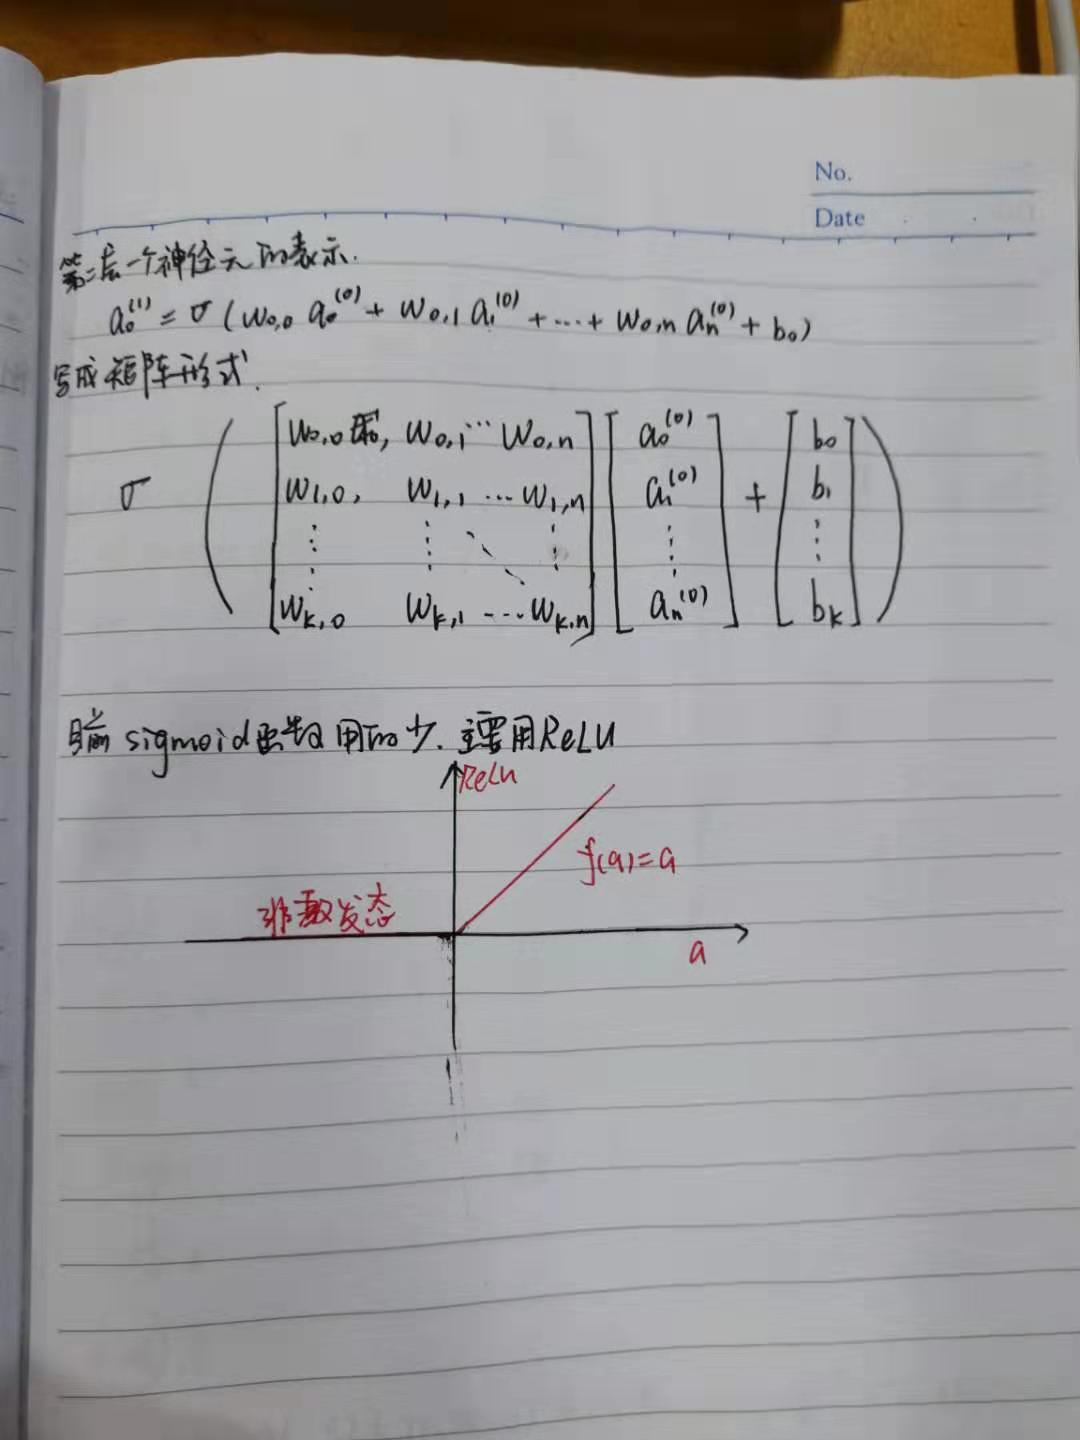 No.
Date
第二层一个神经元的表示.
a₀⁽¹⁾ = σ (w₀,₀ a₀⁽⁰⁾ + w₀,₁ a₁⁽⁰⁾ + ... + w₀,n an⁽⁰⁾ + b₀)
写成矩阵形式.
σ ( [ w₀,₀, w₀,₁ ... w₀,n ] [ a₀⁽⁰⁾ ] + [ b₀ ] )
w₁,₀, w₁,₁ ... w₁,n a₁⁽⁰⁾ b₁
⋮ ⋮ ⋱ ⋮ ⋮ ⋮
wk,₀ wk,₁ ... wk,n an⁽⁰⁾ bk
目前 sigmoid函数用的少. 主要用ReLU
ReLu
f(a)=a
非激发态
a